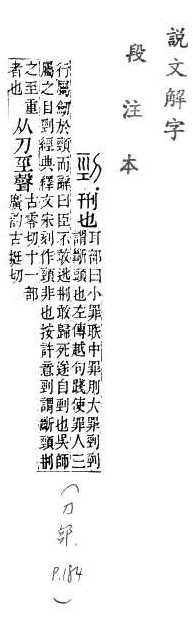 説文解字
段注本
剄 刑也耳部曰小罪聅中罪刖大罪剄剄
謂斷頭也左傳越句踐使罪人三
行屬劒於頸而辭曰臣不敢逃刑敢歸死遂自剄也吳師
屬之目剄經典釋文宋刻作頸非也按許意剄謂斷頭刑
之至重
者也 从刀巠聲古零切十一部
廣韵古挺切
(刀部.
P.184)